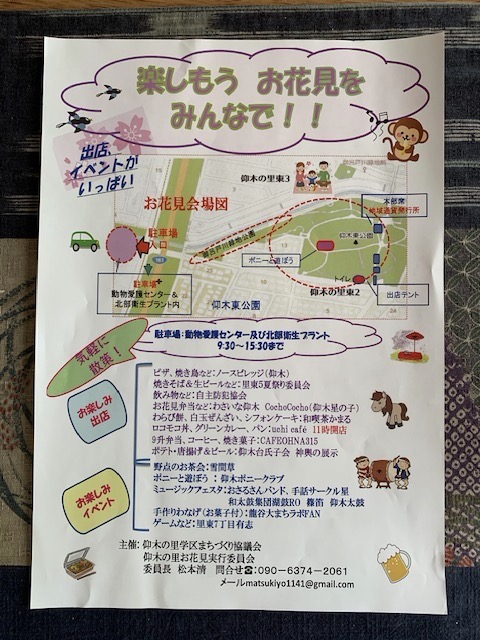 楽しもう お花見を
みんなで！！
出店、
イベントが
いっぱい
お花見会場図
仰木の里東3
本部席
地域通貨発行所
駐車場
入口
仰木東公園
ポニーと遊ぼう
トイレ
仰木の里東2
出店テント
駐車場
動物愛護センター＆
北部衛生プラント内
仰木東公園
気軽に
散策！
駐車場：動物愛護センター及び北部衛生プラント
9:30～15:30まで
お楽しみ
出店
ピザ、焼き鳥など：ノースビレッジ（仰木）
焼きそば＆生ビールなど：里東5夏祭り委員会
飲み物など：自主防犯協会
お花見弁当など：わさいな仰木 CochoCocho（仰木星の子）
わらび餅、白玉ぜんざい、シフォンケーキ：和喫茶かまる
ロコモコ丼、グリーンカレー、パン：uchi café 11時開店
9升弁当、コーヒー、焼き菓子：CAFEOHNA315
ポテト・唐揚げ＆ビール：仰木台氏子会 神輿の展示
お楽しみ
イベント
野点のお茶会：雪間草
ポニーと遊ぼう：仰木ポニークラブ
ミュージックフェスタ：おさるさんバンド、手話サークル星
和太鼓集団湖鼓RO 篠笛 仰木太鼓
手作りわなげ（お菓子付）：龍谷大まちラボFAN
ゲームなど：里東7丁目有志
主催：仰木の里学区まちづくり協議会
仰木の里お花見実行委員会
委員長 松本清 問合せ☎：090-6374-2061
メールmatsukiyo1141@gmail.com